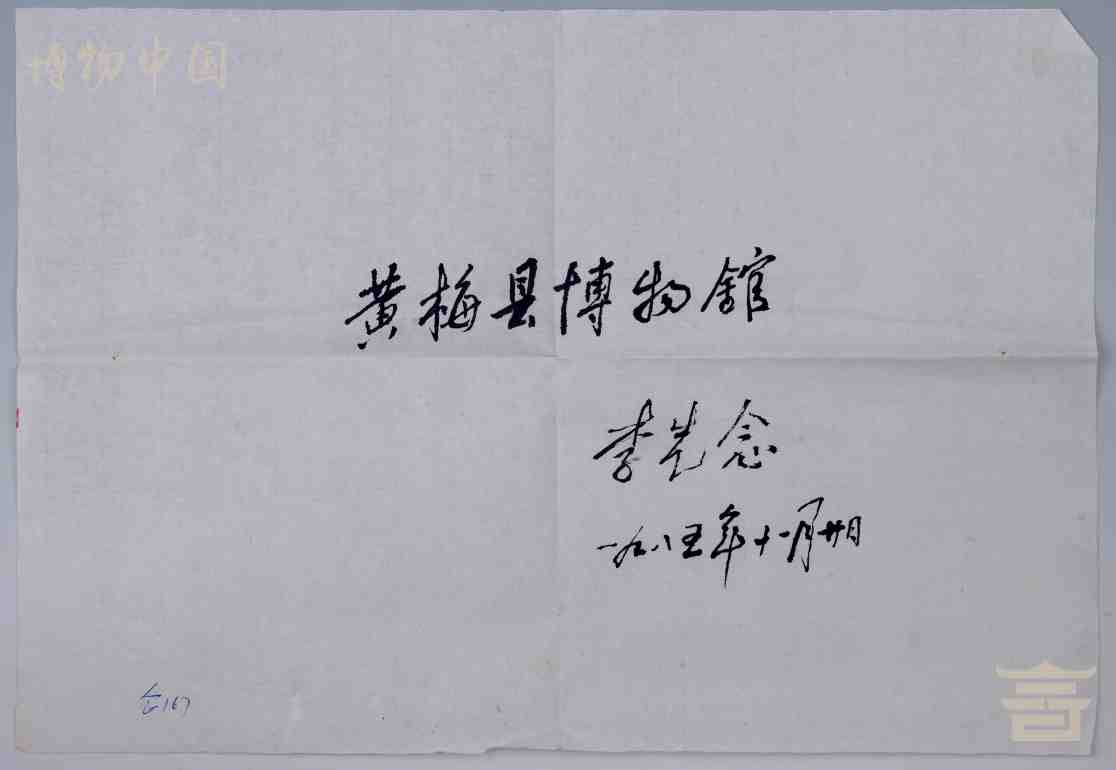 博物中国
黄梅县博物馆
李先念
一九八五年十一月廿日
167